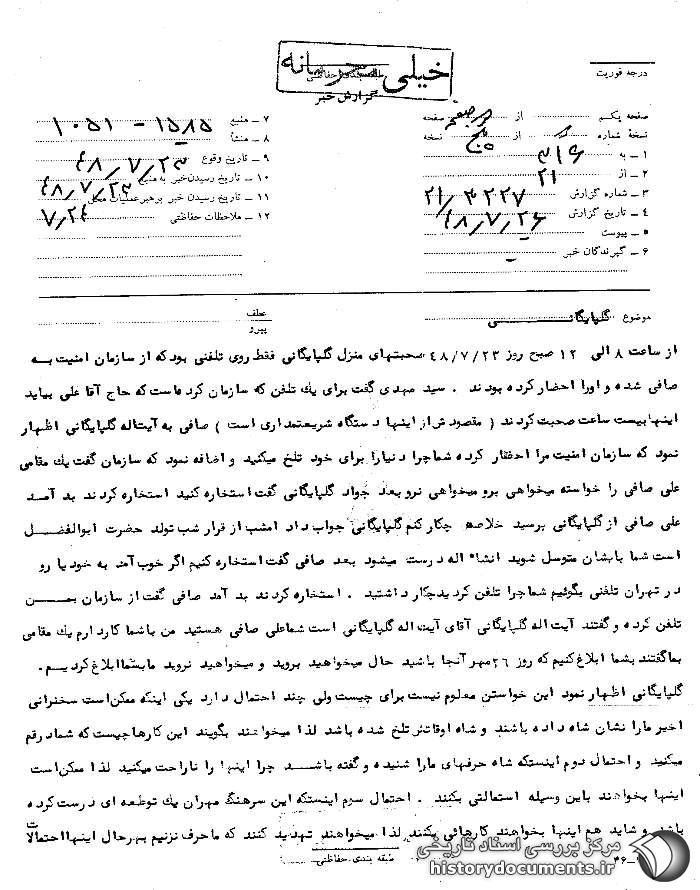 خیلی محرمانه
طبقه‌بندی حفاظتی
گزارش خبر
درجه فوریت
صفحه یکم از صفحه
نسخه شماره از پنج نسخه
۱ ـ به ۳۱۶
۲ ـ از ۲۱
۳ ـ شماره گزارش ۲۱/۳۲۲۷
۴ ـ تاریخ گزارش ۴۸/۷/۲۶
۵ ـ پیوست
۶ ـ گیرندگان خبر
۷ ـ منبع ۱۵۸۵ - ۱۰۵۱
۸ ـ منشأ
۹ ـ تاریخ وقوع ۴۸/۷/۲۳
۱۰ ـ تاریخ رسیدن خبر به منبع ۴۸/۷/۲۳
۱۱ ـ تاریخ رسیدن خبر برهبر عملیات محل ۷/۲۴
۱۲ ـ ملاحظات حفاظتی
موضوع گلپایگانی
عطف
پیرو
از ساعت ۸ الی ۱۲ صبح روز ۴۸/۷/۲۳ صحبتهای منزل گلپایگانی فقط روی تلفنی بود که از سازمان امنیت به
صافی شده و اورا احضار کرده بودند . سید مهدی گفت برای یك تلفن که سازمان کرده است که حاج آقا علی بیاید
اینها بیست ساعت صحبت کردند ( مقصودش از اینها دستگاه شریعتمداری است ) صافی به آیت اله گلپایگانی اظهار
نمود که سازمان امنیت مرا احضار کرده شما چرا دنیا را برای خود تلخ میکنید و اضافه نمود که سازمان گفت یك مقامی
علی صافی را خواسته میخواهی برو میخواهی نرو بعد جواد گلپایگانی گفت استخاره کنید استخاره کردند بد آمد
علی صافی از گلپایگانی پرسید خلاصه چکار کنم گلپایگانی جواب داد امشب از قرار شب تولد حضرت ابوالفضل
است شما بایشان متوسل شوید انشاء اله درست میشود بعد صافی گفت استخاره کنیم اگر خوب آمد به خود یا رو
در تهران تلفنی بگوئیم شما چرا تلفن کردید چکار داشتید . استخاره کردند بد آمد صافی گفت از سازمان بمن
تلفن کرده و گفتند آیت اله گلپایگانی آقای آیت اله گلپایگانی است شما علی صافی هستید من باشما کار دارم یك مقامی
بما گفتند بشما ابلاغ کنیم که روز ۲۶ مهر آنجا باشید حال میخواهید بروید و میخواهید نروید ما بشما ابلاغ کردیم .
گلپایگانی اظهار نمود این خواستن معلوم نیست برای چیست ولی چند احتمال دارد یکی اینکه ممکن است سخنرانی
اخیر مارا نشان شاه داده باشند و شاه اوقاتش تلخ شده باشد لذا میخواهند بگویند این کارها چیست که شما در قم
میکنید و احتمال دوم اینستکه شاه حرفهای مارا شنیده و گفته باشد چرا اینها را ناراحت میکنید لذا ممکن است
اینها بخواهند باین وسیله استمالتی بکنند . احتمال سوم اینستکه این سرهنگ مهران یك توطعه ای درست کرده
باشد و شاید هم اینها بخواهند کارهائی بکنند لذا میخواهند تهدید کنند که ما حرف نزنیم بهرحال اینها احتمالات
طبقه بندی حفاظتی
مرکز بررسی اسناد تاریخی
historydocuments.ir